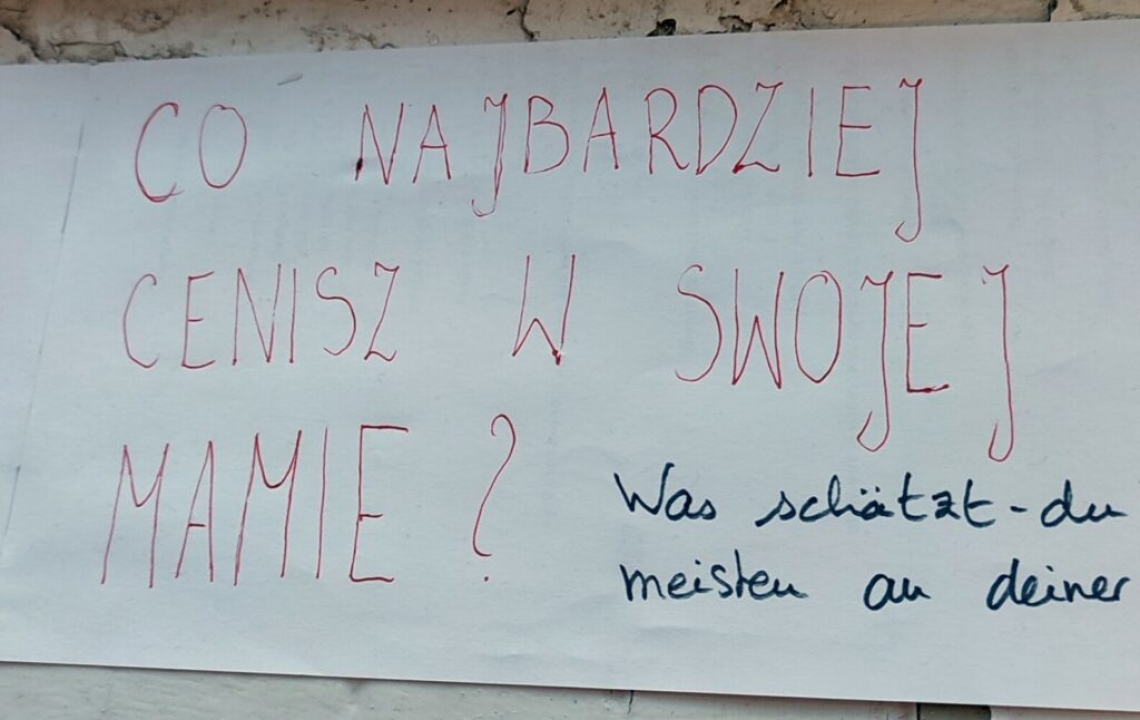 CO NAJBARDZIEJ
CENISZ W SWOJEJ
MAMIE ?
Was schätzt du
meisten an deiner